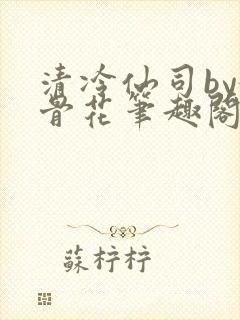 清冷仙司by
骨花笔趣阁
蘇柠柠